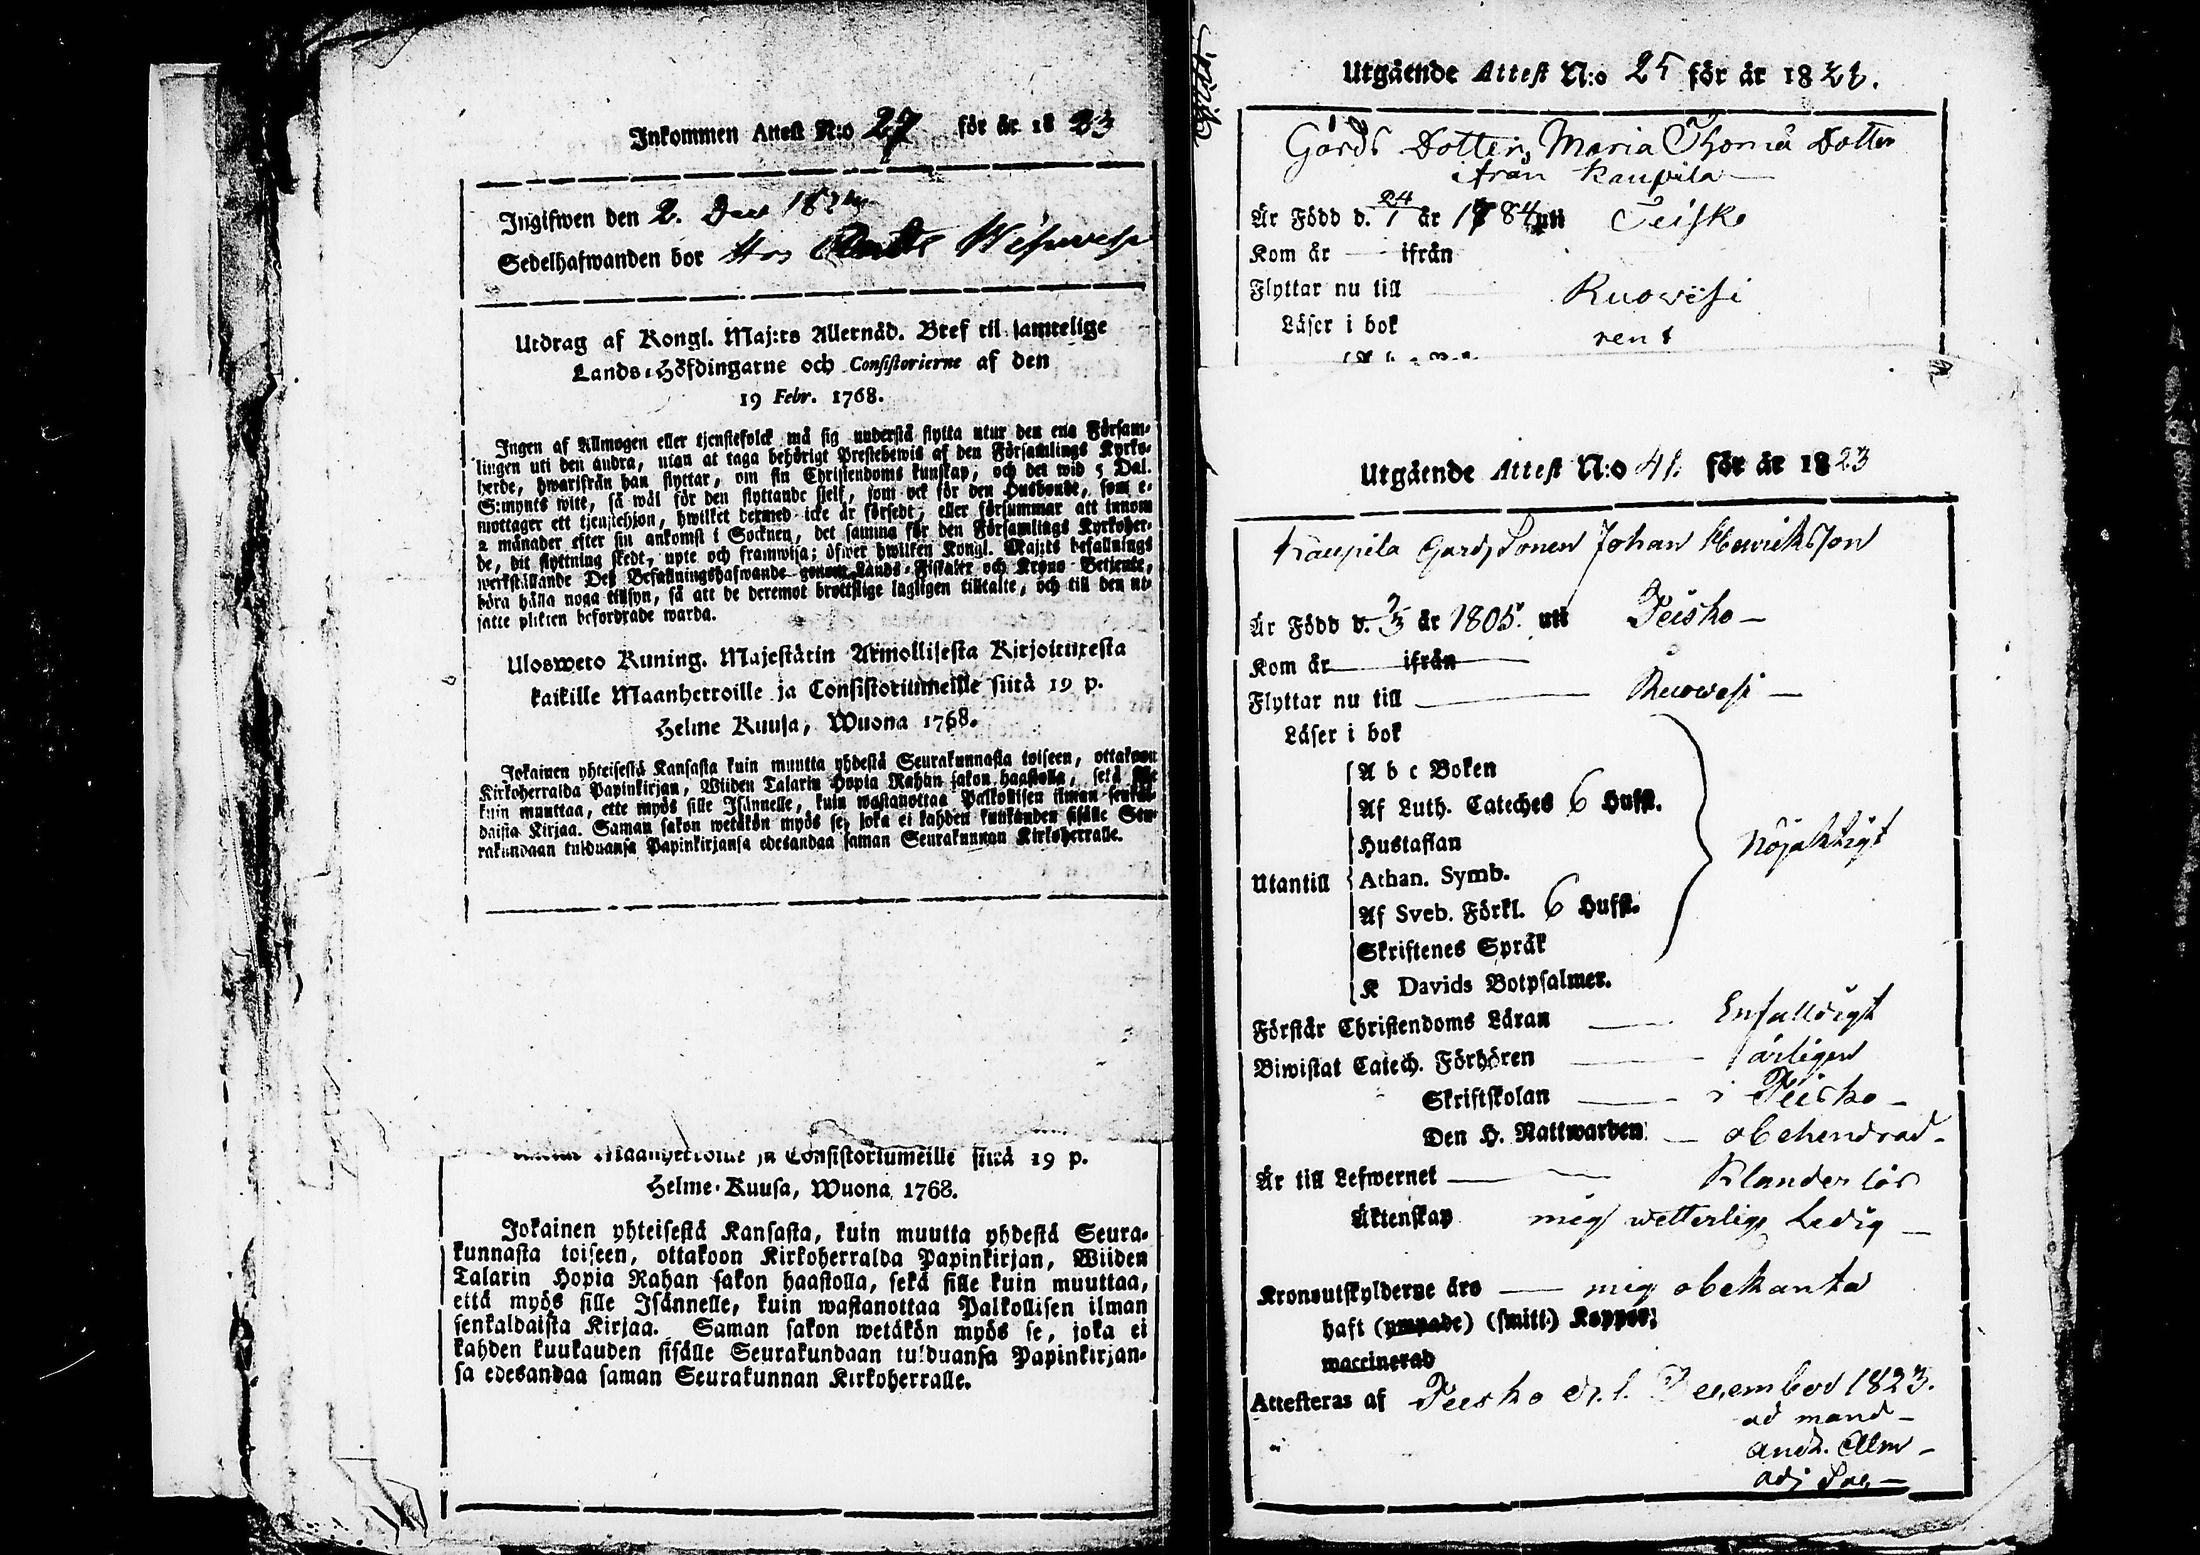 Inkommen Attest N:o 27 för år 1823
Ingifwen den 2. Dec
Sedelhafwanden bor Hos
Utdrag af Kongl. Maj:ts Allernåd. Bref til samtelige
Lands-Höfdingarne och Consistorierne af den
19 Febr. 1768.
Ingen af Allmogen eller tjenstefolck må sig understå flytta utur den ena Försam-
lingen uti den andra, utan at taga behörigt Prestebewis af den Församlings Kyrko-
herde, hwarifrån han flyttar, om sin Christendoms kunskap, och det wid 5 Dal.
S:mynts wite, så wäl för den flyttande sielf, som ock för den Husbonde, som e-
mottager ett tjenstehjon, hwilket dermed icke är försedt, eller försummar att innom
2 månader efter sin ankomst i Socknen, det samma för den Församlings Kyrkoher-
de, dit flyttning skedt, upte och framwisa; öfwer hwilken Kongl. Maj:ts befallnings
werkställande Des Befallningshafwande genom Lands-Fiskaler och Krono-Betjente,
böra hålla noga tillsyn, så att de deremot brottslige lagligen tilltalte, och till den ut-
satte plikten befordrade warda.
Ulosweto Kuning. Majestätin Armollisesta Kirjoituxesta
kaikille Maanherroille ja Consistoriumeille siitä 19 p.
Helme Kuusa, Wuona 1768.
Jokainen yhteisestä Kansasta kuin muutta yhdestä Seurakunnasta toiseen, ottakoon
Kirkoherralda Papinkirjan, Wiiden Talarin Hopia Rahan sakon haastolla, sekä sille
kuin muuttaa, ette myös sille Isännelle, kuin wastanottaa Palkollisen ilman senkal-
daista Kirjaa. Saman sakon wetäkön myös se, joka ei kahden kuukauden sisälle Seu-
rakundaan tulduansa Papinkirjansa edesandaa saman Seurakunnan Kirkoherralle.
Maanherroille ja Consistoriumeille siitä 19 p.
Helme-Kuusa, Wuona 1768.
Jokainen yhteisestä Kansasta, kuin muutta yhdestä Seura-
kunnasta toiseen, ottakoon Kirkoherralda Papinkirjan, Wiiden
Talarin Hopia Rahan sakon haastolla, sekä sille kuin muuttaa,
että myös sille Isännelle, kuin wastanottaa Palkollisen ilman
senkaldaista Kirjaa. Saman sakon wetäkön myös se, joka ei
kahden kuukauden sisälle Seurakundaan tulduansa Papinkirjan-
sa edesandaa saman Seurakunnan Kirkoherralle.
Utgående Attest N:o 25 för år 18
Gårds Dottren Maria Thomæ Dotter
ifrån Kaupila
Är Född d. 24/1 år 1784 uti Teisko
Kom år — ifrån
Flyttar nu till Ruowesi
Läser i bok rent
Utgående Attest N:o 41. för år 1823
Kaupila Gårds Sonen Johan Henriksson
Är Född d. år 1805. uti Teisko —
Kom år — ifrån —
Flyttar nu till — Ruowesi —
Läser i bok
A b c Boken
Af Luth. Cateches 6 Hufst.
Hustaflan
Utantill Athan. Symb.
Af Sveb. Förkl. 6 Hufst.
Skriftenes Språk
K Davids Botpsalmer.
Nöjaktigt
Förstår Christendoms Läran — Enfalldigt
Biwistat Catech. Förhören — årligen
Skriftskolan — i Teisko —
Den H. Nattwarden — obehindrad —
Är till Lefwernet — Klanderlös
Äktenskap mig wetterlig Ledig —
Kronoutskylderne äro — mig obekanta
haft (ympade) (smitt.) Koppor;
waccinerad
Attesteras af Teisko d. 1. December 1823.
ad mand —
And. Alm —
adj. Sac. —